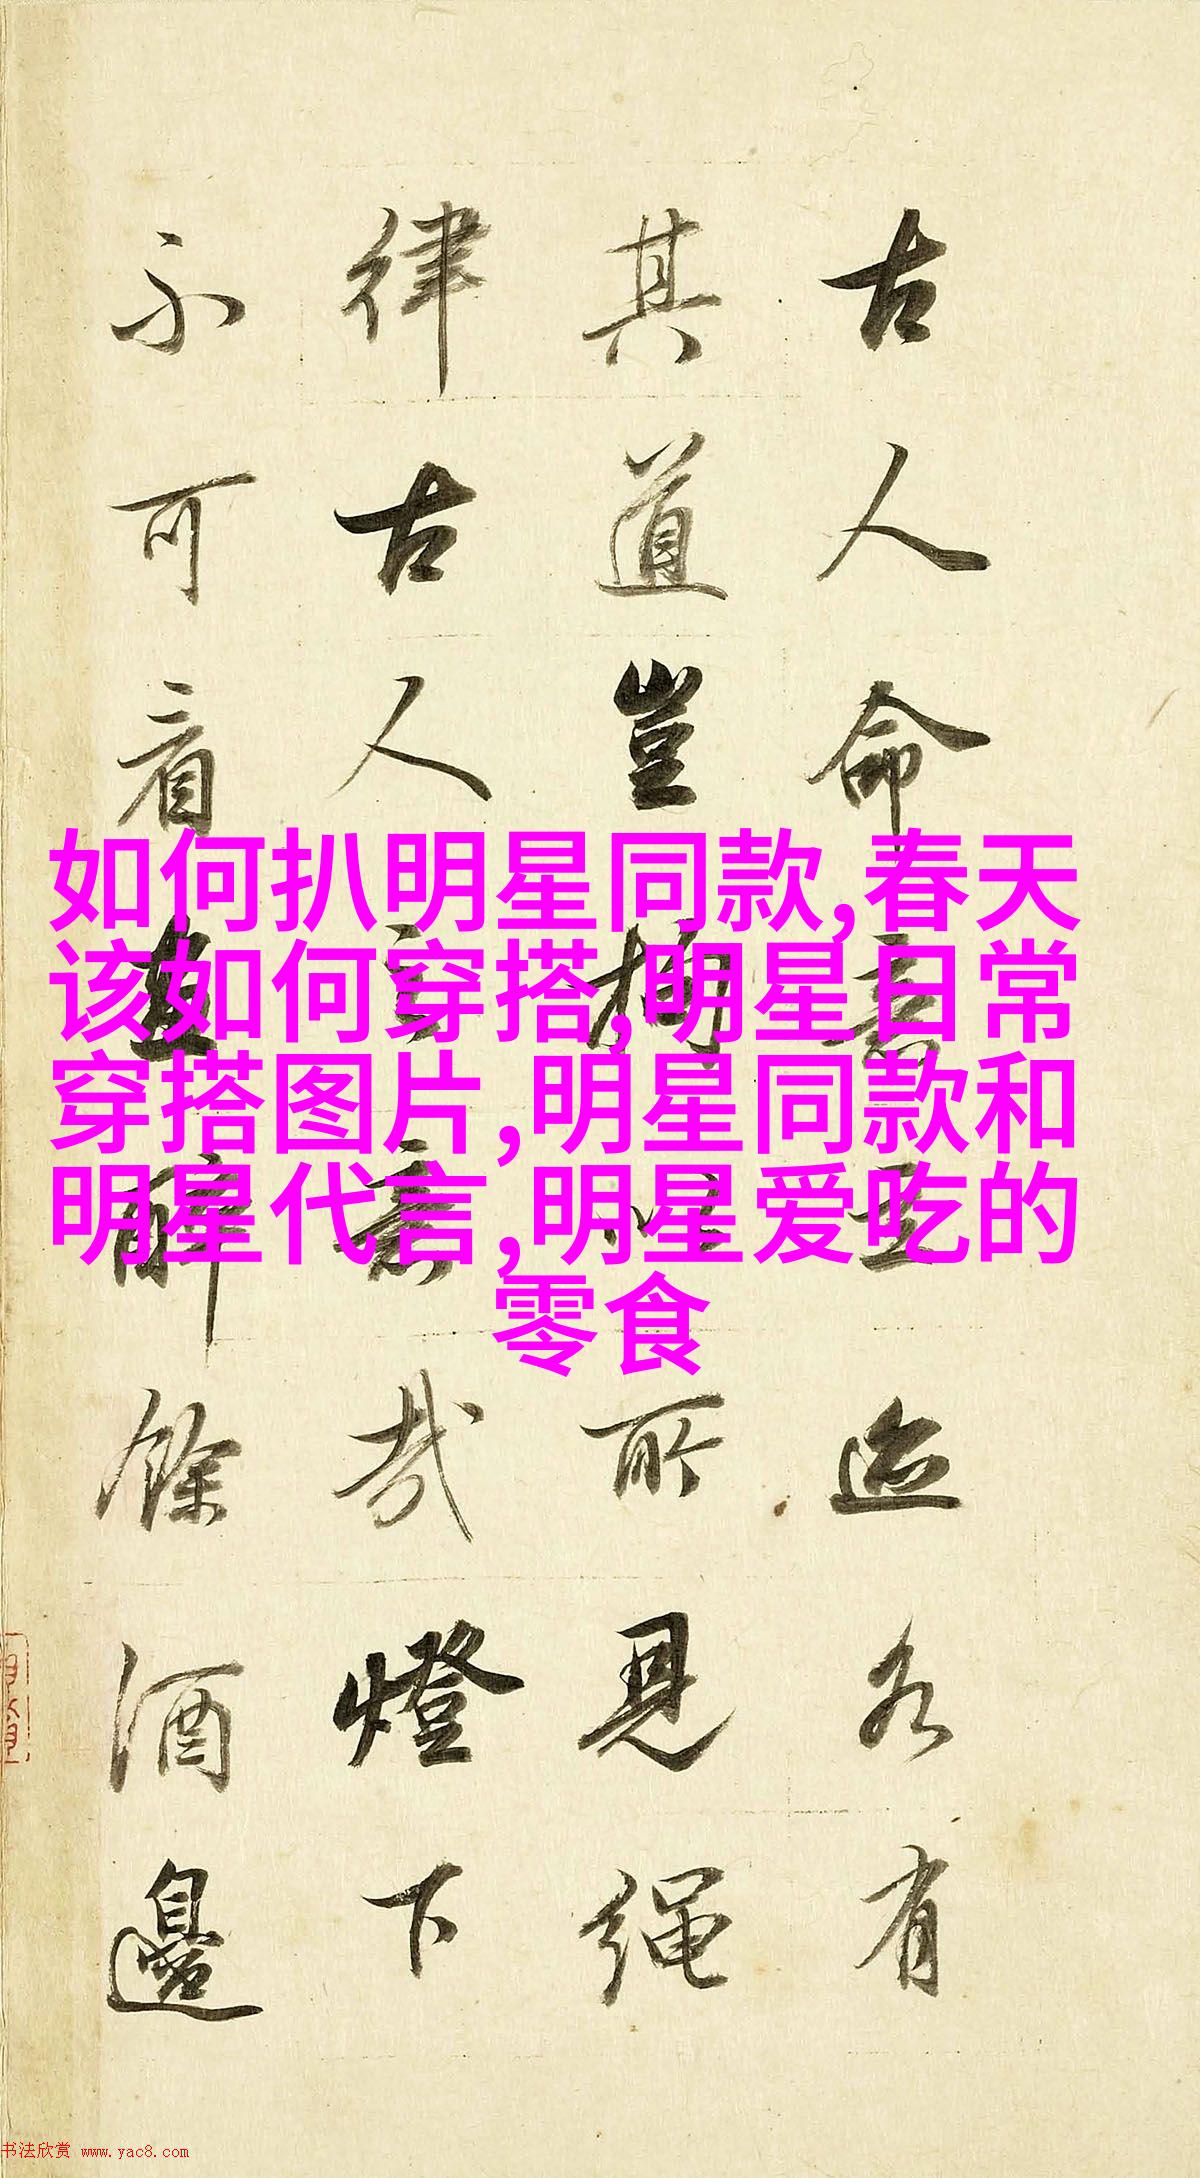 古人命意立迹各有
其道豈拘以所見繩
律古人之意哉燈下
不可看畫醉餘酒邊
如何扒明星同款,春天
该如何穿搭,明星日常
穿搭图片,明星同款和
明星代言,明星爱吃的
零食
书法欣赏 www.yac8.com